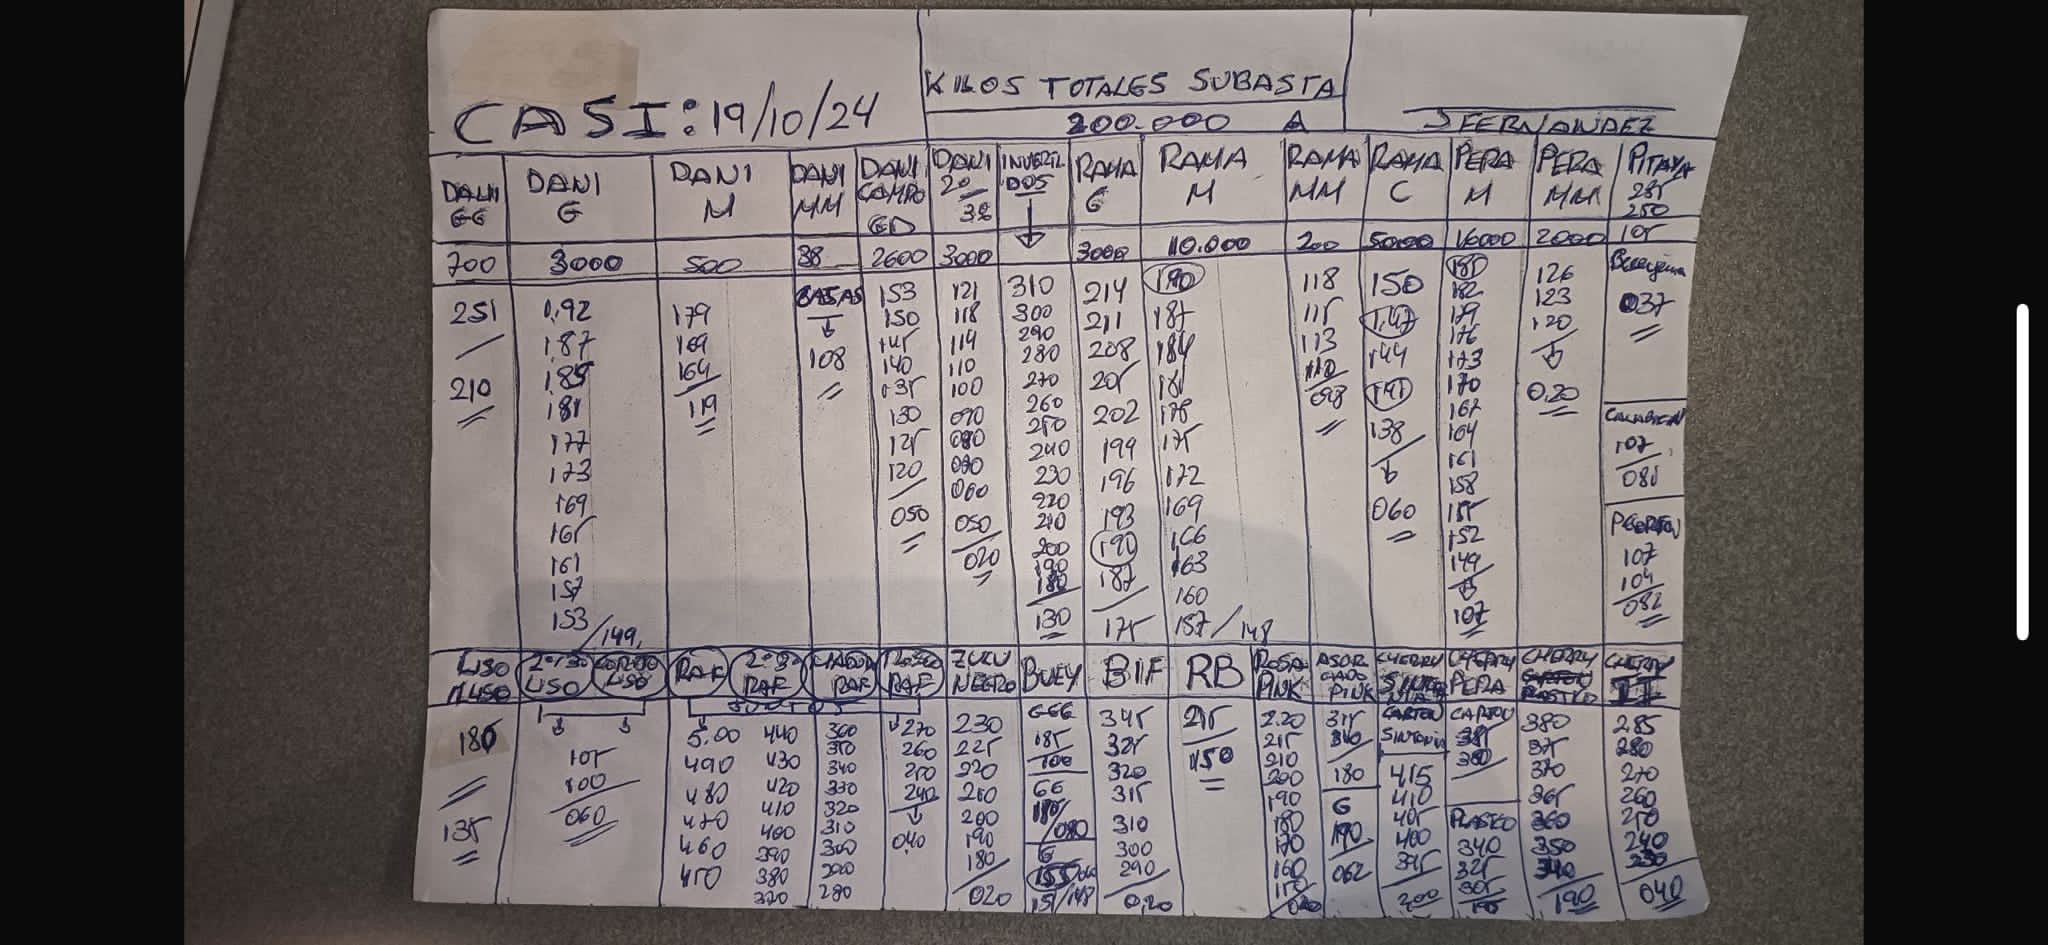 CASI: 19/10/24
KILOS TOTALES SUBASTA
200.000 A
J FERNANDEZ
DANI GG
700
251
210
DANI G
3000
192
187
185
181
177
173
169
165
161
157
153/149
DANI M
500
179
169
164
119
DANI MM
38
CAJAS
108
DANI CAMPO GD
2600
153
150
145
140
135
130
125
120
050
DANI 2º
3ª
3000
121
118
114
110
100
090
080
070
060
050
020
310
300
290
280
270
260
250
240
230
220
210
200
190
180
130
RAMA G
3000
214
211
208
205
202
199
196
193
190
187
175
RAMA M
110.000
190
187
184
181
178
175
172
169
166
163
160
157/148
RAMA MM
200
118
115
113
110
098
RAMA C
5000
150
147
144
141
138
060
PERA M
16000
185
182
179
176
173
170
167
164
161
158
155
152
149
107
PERA MM
2000
126
123
120
0,20
PITAYA
285
250
105
Berenjena
037
CALABACIN
107
081
107
104
082
LISO
180
135
2º
LISO
LISO
105
100
060
RAF
5.00
490
480
470
460
450
2º
RAF
440
430
420
410
400
390
380
370
RAF
360
350
340
330
320
310
300
290
280
ROSCO RAF
270
260
250
240
040
ZULU NEGRO
230
225
220
210
200
190
180
020
BUEY
GGG
185
100
GG
185/080
G
155
151/148
BIF
345
325
320
315
310
300
290
0,20
RB
215
150
ROSA PINK
2.20
215
210
200
190
180
170
160
150
PINK
315
310
180
G
190
062
CHERRY
CARTON
SINTONIA
415
410
405
400
395
200
CHERRY PERA
CARTON
385
380
PLASTICO
340
325
305
190
CHERRY
PLASTICO
380
375
370
365
360
350
340
190
CHERRY II
285
280
270
260
250
240
230
040